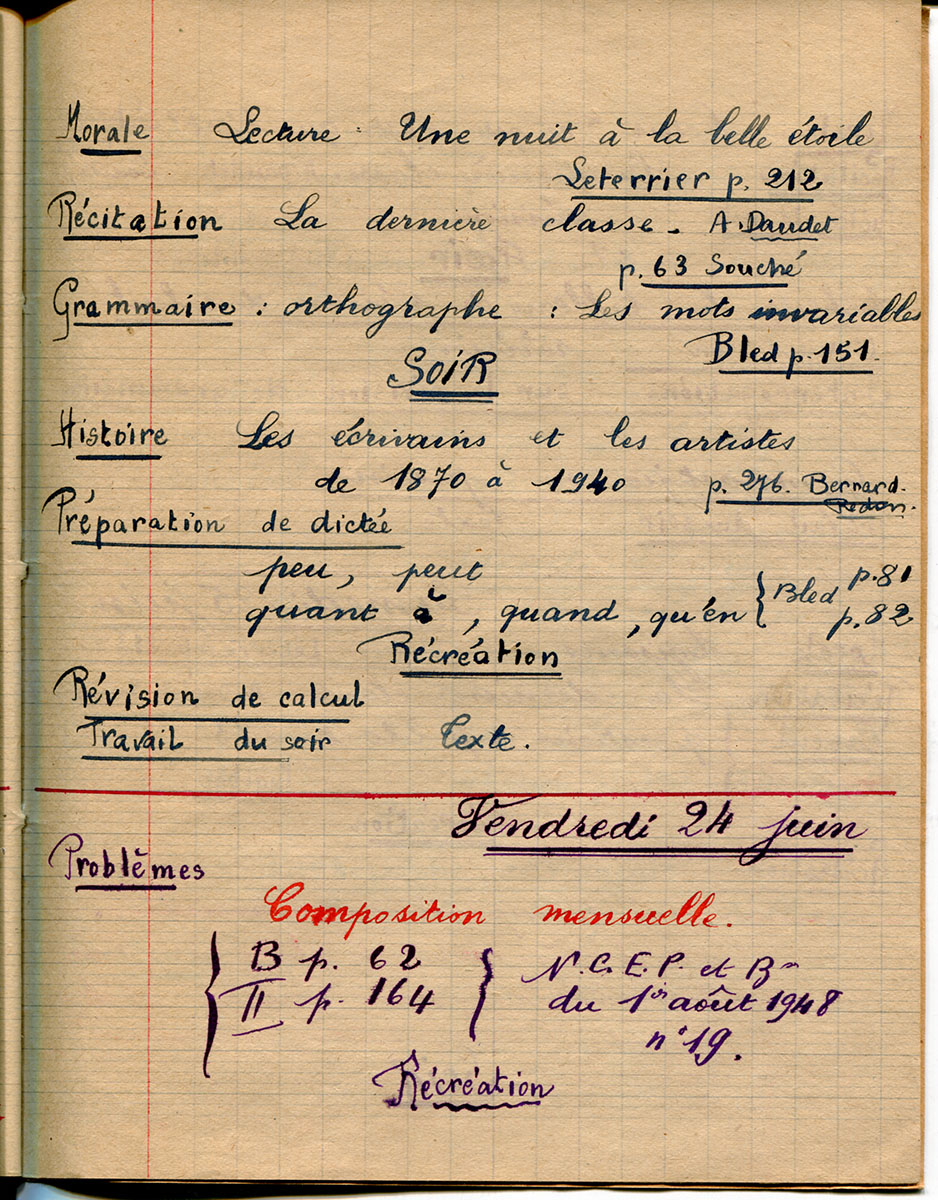 Morale Lecture : Une nuit à la belle étoile
Leterrier p. 212
Récitation La dernière classe. A. Daudet
p. 63 Souché
Grammaire : orthographe : Les mots invariables
Bled p. 151.
SOIR
Histoire Les écrivains et les artistes
de 1870 à 1940 p. 276. Bernard-
Redon.
Préparation de dictée
peu, peut
quant à, quand, qu'en { Bled p. 81
p. 82
Récréation
Révision de calcul
Travail du soir Texte.
Vendredi 24 juin
Problèmes
Composition mensuelle.
{ B p. 62 { N.C.E.P. et Bm
II p. 164 du 1er août 1948
n° 19.
Récréation